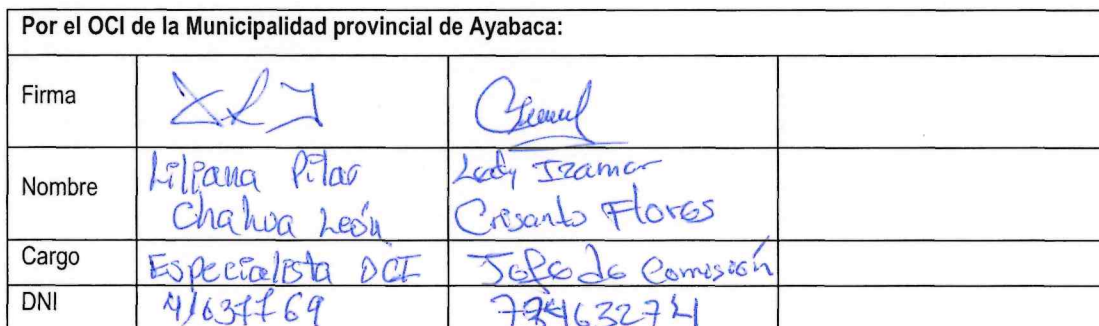 Por el OCI de la Municipalidad provincial de Ayabaca:
Firma
Nombre Liliana Pilar Lady Izamar
Chahua León Crisanto Flores
Cargo Especialista OCI Jefe de Comisión
DNI 41637769